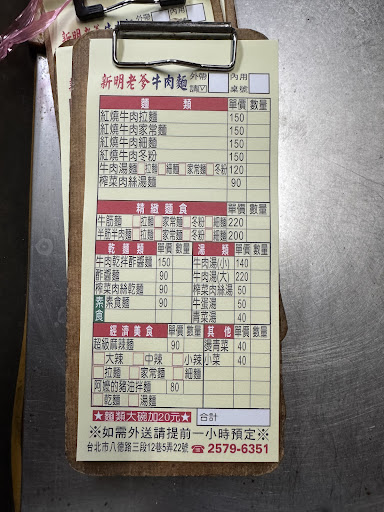 新明老爹牛肉麵 外帶 內用
請☑ 桌號
麵 類 單價 數量
紅燒牛肉拉麵 150
紅燒牛肉家常麵 150
紅燒牛肉細麵 150
紅燒牛肉冬粉 150
牛肉湯麵 □拉麵 □細麵 □家常麵 □冬粉 120
榨菜肉絲湯麵 90
精緻麵食 單價 數量
牛筋麵 □拉麵 □家常麵 □冬粉 □細麵 220
半筋半肉麵 □拉麵 □家常麵 □冬粉 □細麵 200
乾麵類 單價 數量 湯 類 單價 數量
牛肉乾拌酢醬麵 150 牛肉湯(小) 140
酢醬麵 90 牛肉湯(大) 220
榨菜肉絲乾麵 90 榨菜肉絲湯 50
素食 素食麵 90 牛蛋湯 50
青菜湯 40
經濟美食 單價 數量 其 他 單價 數量
超級麻辣麵 90 燙青菜 40
□大辣 □中辣 □小辣 小菜 40
□拉麵 □家常麵 □細麵
阿嬤的豬油拌麵 80
□乾麵 □湯麵
★麵類大碗加20元★ 合計
※如需外送請提前一小時預定※
台北市八德路三段12巷5弄22號 ☎2579-6351